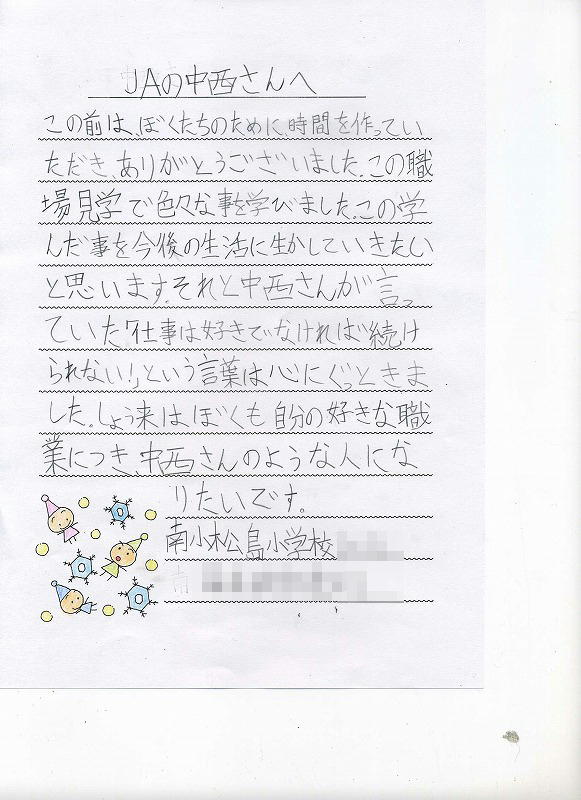 JAの中西さんへ
この前は、ぼくたちのために、時間を作ってい
ただき、ありがとうございました。この職
場見学で色々な事を学びました。この学
んだ事を今後の生活に生かしていきたい
と思います。それと中西さんが言っ
ていた「仕事は好きでなければ続け
られない!」という言葉は心にぐっときま
した。しょう来は、ぼくも自分の好きな職
業につき、中西さんのような人にな
りたいです。
南小松島小学校